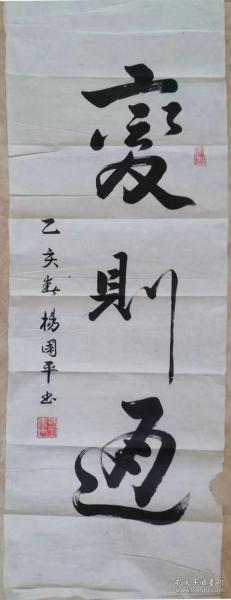 變則通
乙亥春楊國平書
孔夫子旧书网